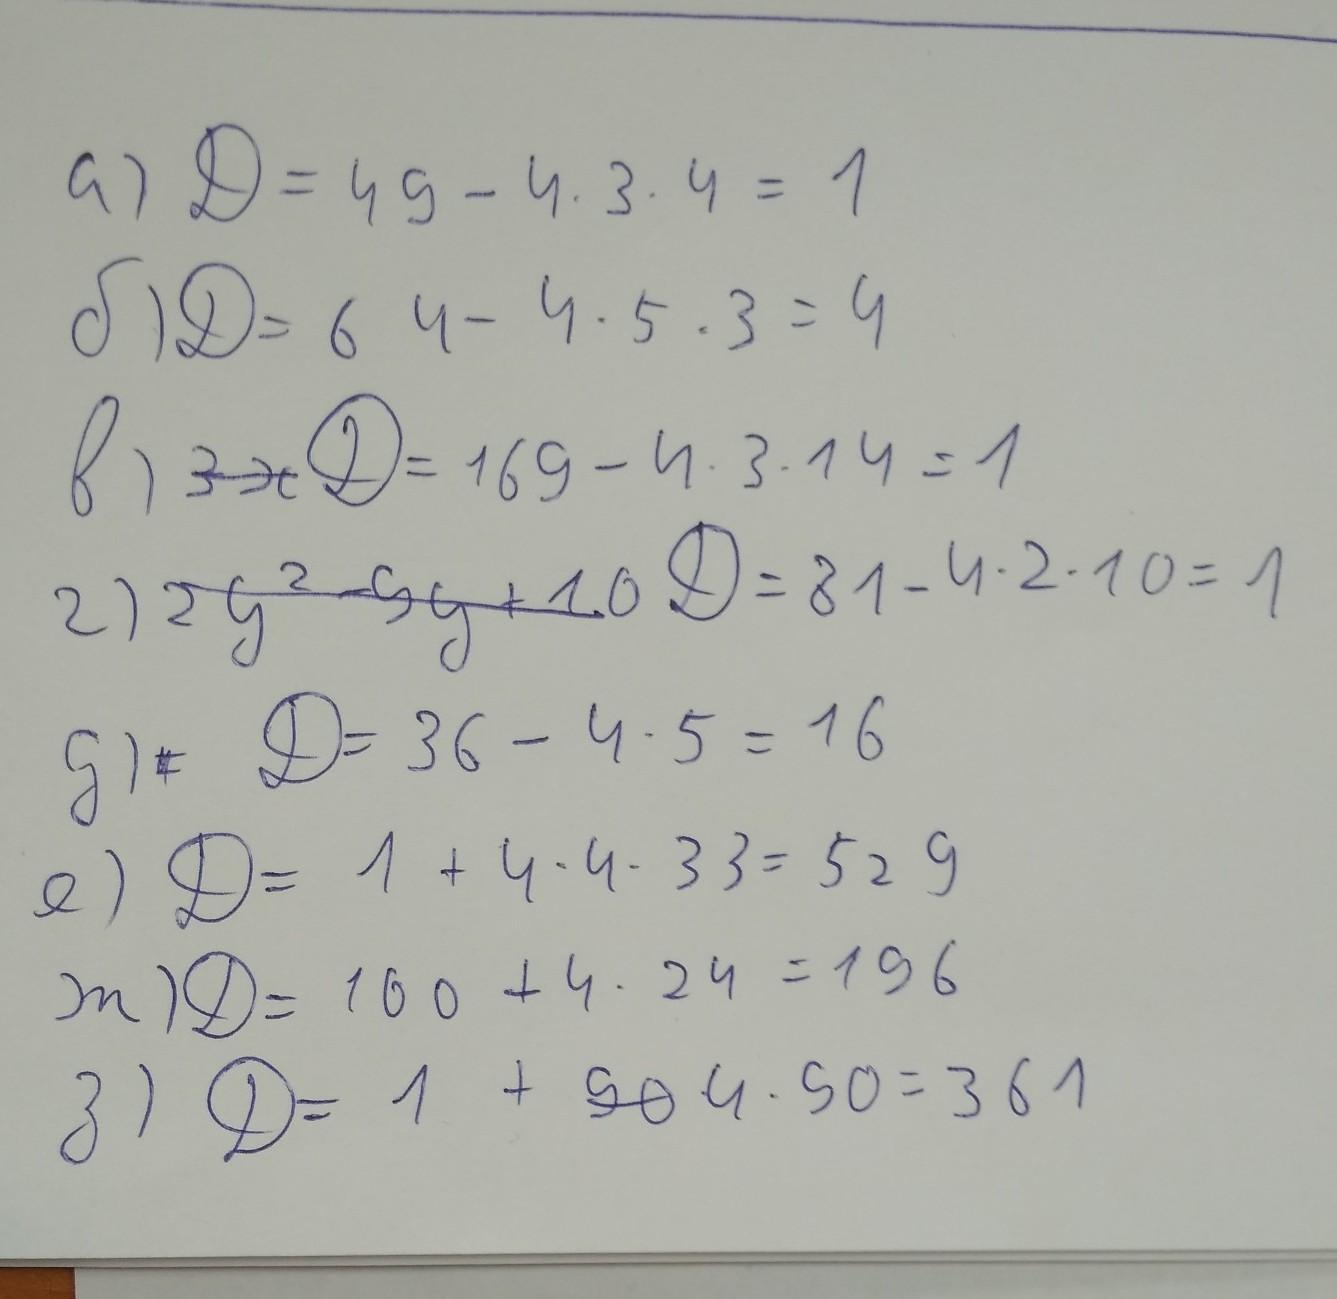 а) D = 49 - 4 · 3 · 4 = 1
б) D = 64 - 4 · 5 · 3 = 4
в) 3x D = 169 - 4 · 3 · 14 = 1
г) 2y² - 9y + 10 D = 81 - 4 · 2 · 10 = 1
д) D = 36 - 4 · 5 = 16
е) D = 1 + 4 · 4 · 33 = 529
ж) D = 100 + 4 · 24 = 196
з) D = 1 + 90 4 · 90 = 361